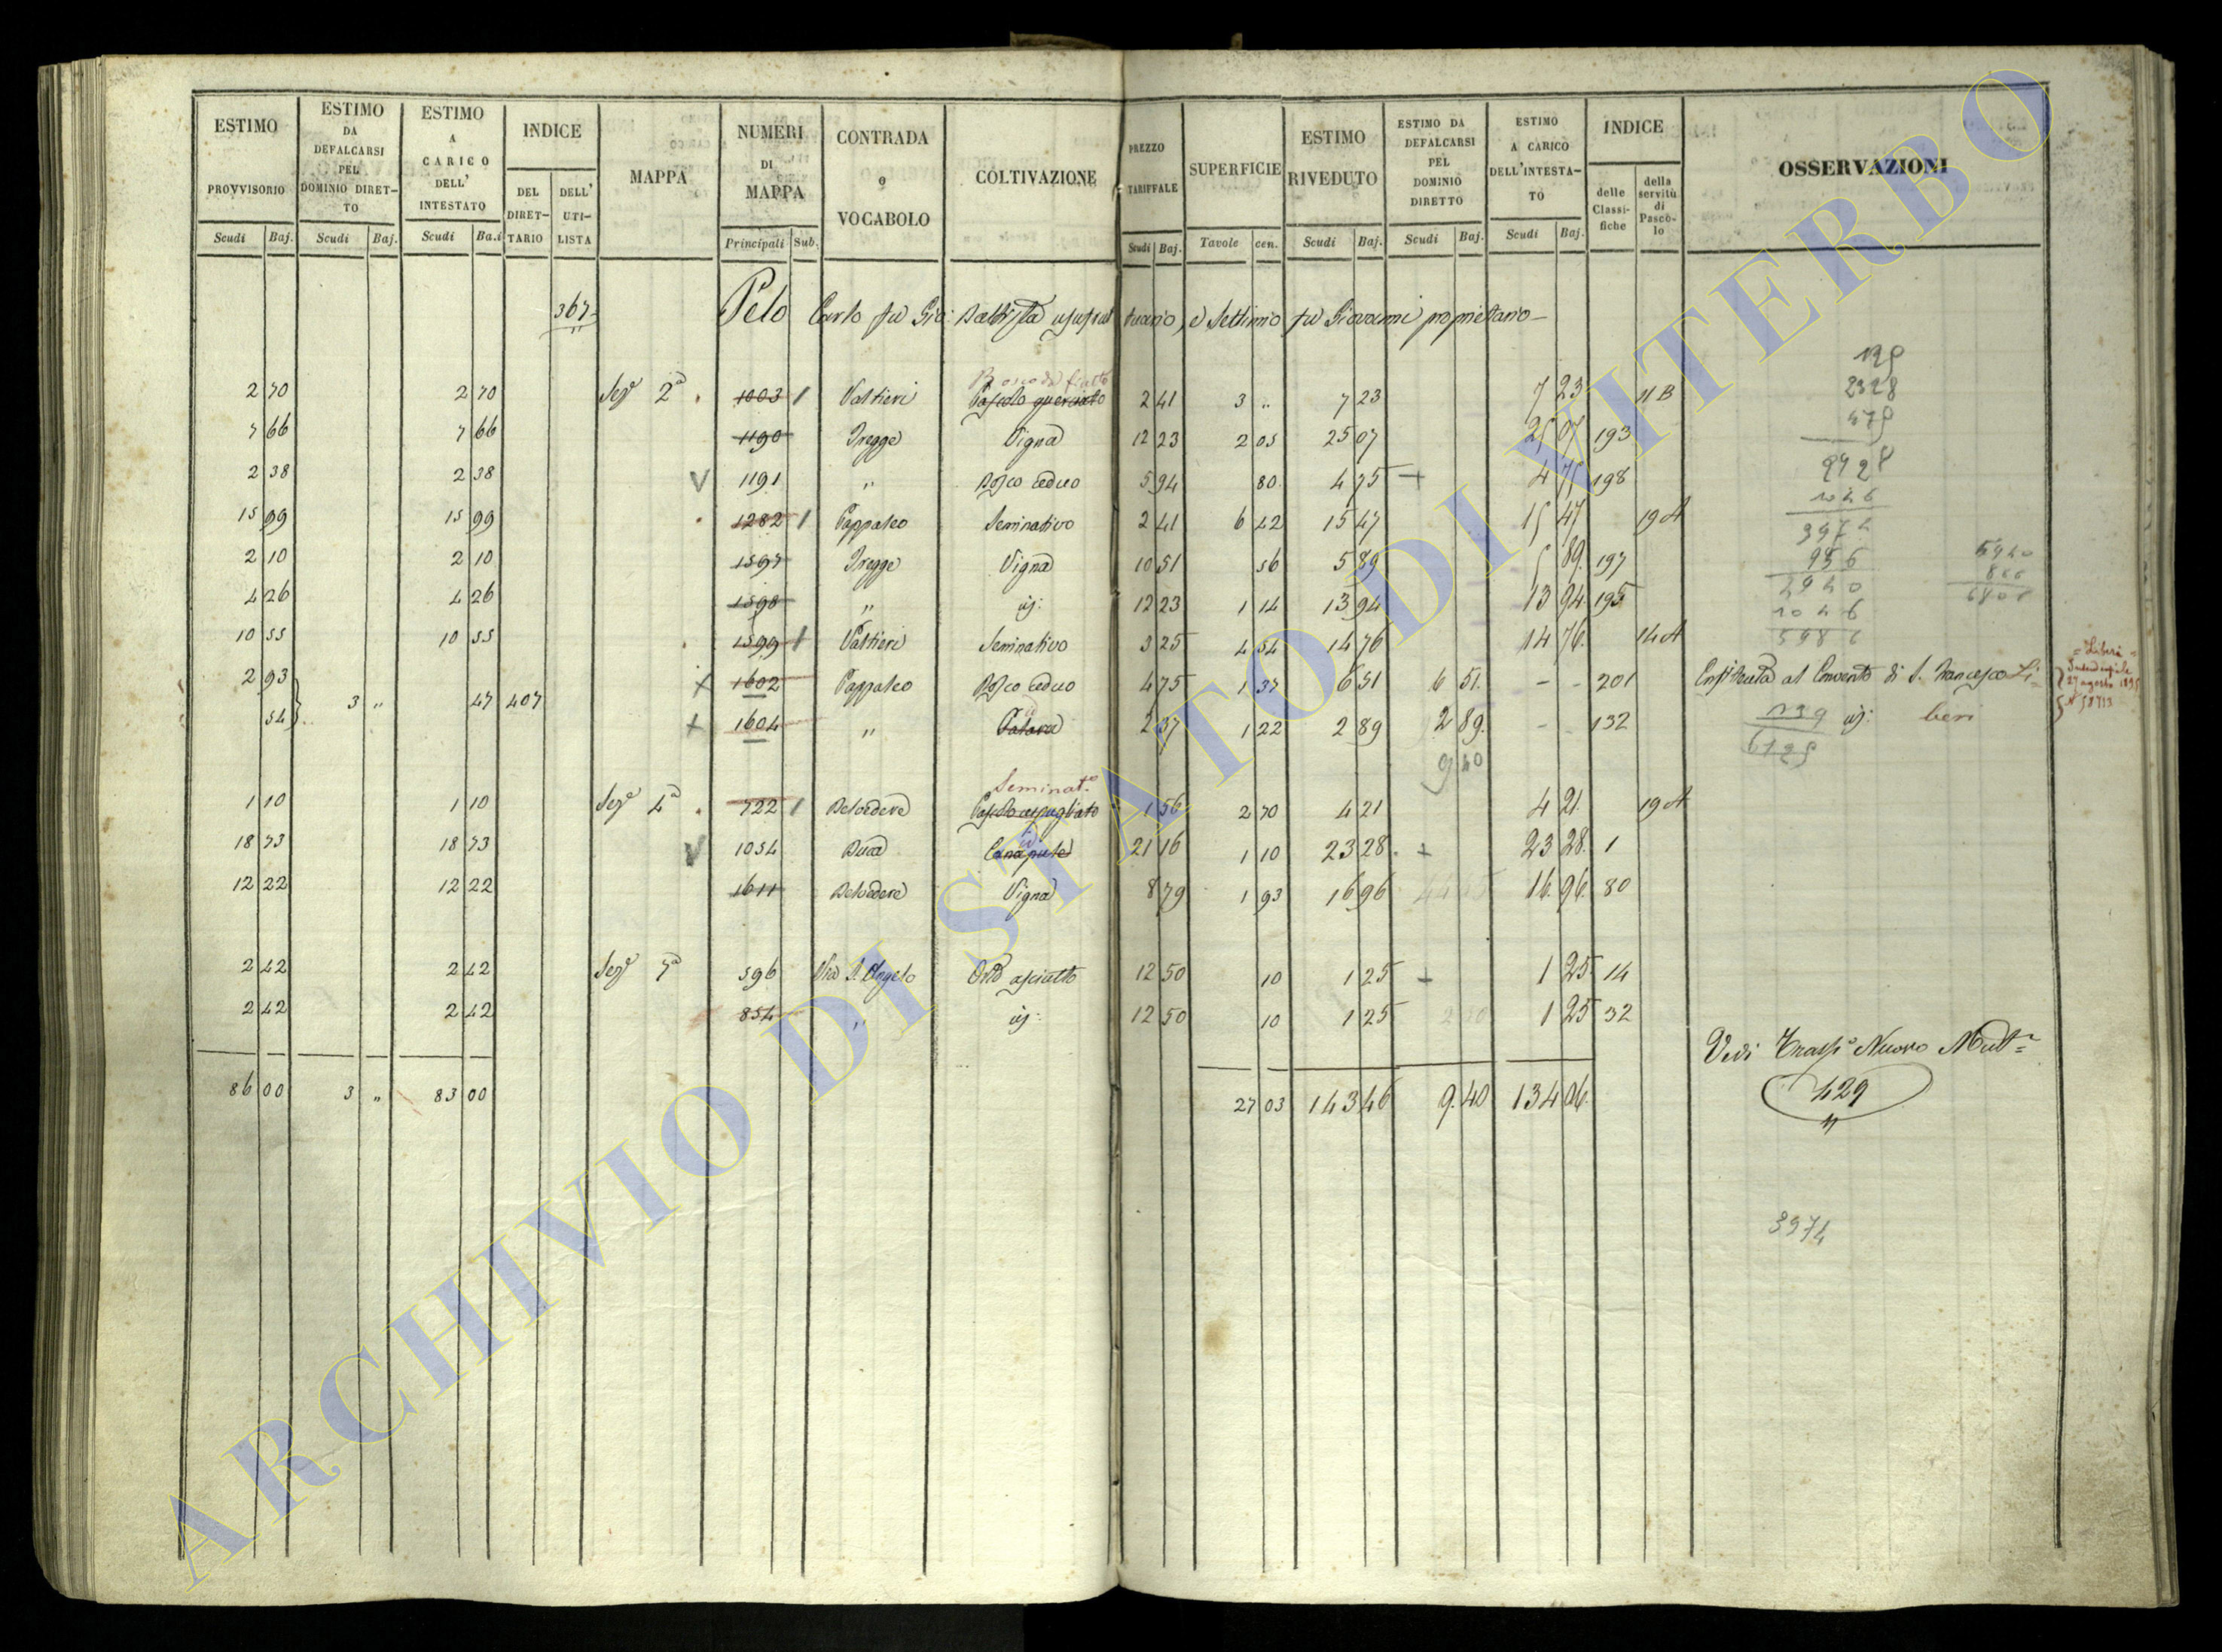 ESTIMO PROVVISORIO | ESTIMO DA DEFALCARSI PEL DOMINIO DIRETTO | ESTIMO A CARICO DELL' INTESTATO | INDICE | MAPPA | NUMERI DI MAPPA | CONTRADA o VOCABOLO | COLTIVAZIONE | PREZZO TARIFFALE | SUPERFICIE | ESTIMO RIVEDUTO | ESTIMO DA DEFALCARSI PEL DOMINIO DIRETTO | ESTIMO A CARICO DELL'INTESTATO | INDICE | OSSERVAZIONI
DEL DIRETTARIO | DELL' UTILISTA | delle Classifiche | della servitù di Pascolo
Scudi | Baj. | Scudi | Baj. | Scudi | Ba.i | Principali | Sub. | Scudi | Baj. | Tavole | cen. | Scudi | Baj. | Scudi | Baj. | Scudi | Baj.
367
Pelo Carlo fu Gio: Battista usufruttuario, e Settimio fu Giovanni proprietario
Bosco da frutto
2 70 | 2 70 | Sez.e 2a | 1003 1 | Valtieri | Pascolo querciato | 2 41 | 3 „ | 7 23 | 7 23 | 11 B
7 66 | 7 66 | 1190 | Tregge | Vigna | 12 23 | 2 05 | 25 07 | 25 07 | 193
2 38 | 2 38 | V | 1191 | „ | Bosco ceduo | 5 94 | 80 | 4 75 | + | 4 75 | 198
15 99 | 15 99 | 1282 1 | Pappaleo | Seminativo | 2 41 | 6 42 | 15 47 | 15 47 | 19 A
2 10 | 2 10 | 1597 | Tregge | Vigna | 10 51 | 56 | 5 89 | 5 89 | 197
4 26 | 4 26 | 1598 | „ | id: | 12 23 | 1 14 | 13 94 | 13 94 | 195
10 55 | 10 55 | 1599 1 | Valtieri | Seminativo | 3 25 | 4 54 | 14 76 | 14 76 | 14 A
2 93 | 3 „ | 47 | 407 | x | 1602 | Pappaleo | Bosco ceduo | 4 75 | 1 37 | 6 51 | 6 51 | - - | 201 | Enfiteuta al Convento di S. Francesco Li=
54 | x | 1604 | „ | 2 37 | 1 22 | 2 89 | 2 89 | - - | 132 | id: beri
= Liberi =
27 agosto
9 40
Seminat.o
1 10 | 1 10 | Sez.e 4a | 722 1 | Belvedere | Pascolo cespugliato | 1 56 | 2 70 | 4 21 | 4 21 | 19 A
18 73 | 18 73 | V | 1054 | Buca | Canapule | 21 16 | 1 10 | 23 28 | + | 23 28 | 1
12 22 | 12 22 | 1611 | Belvedere | Vigna | 8 79 | 1 93 | 16 96 | 16 96 | 80
2 42 | 2 42 | Sez.e 5a | 596 | Via S. Angelo | Orto asciutto | 12 50 | 10 | 1 25 | + | 1 25 | 14
2 42 | 2 42 | 854 | „ | id: | 12 50 | 10 | 1 25 | 1 25 | 32
Vedi Trasp.o Nuovo Mat.
429
86 00 | 3 „ | 83 00 | 27 03 | 143 46 | 9 40 | 134 06
3974
ARCHIVIO DI STATO DI VITERBO